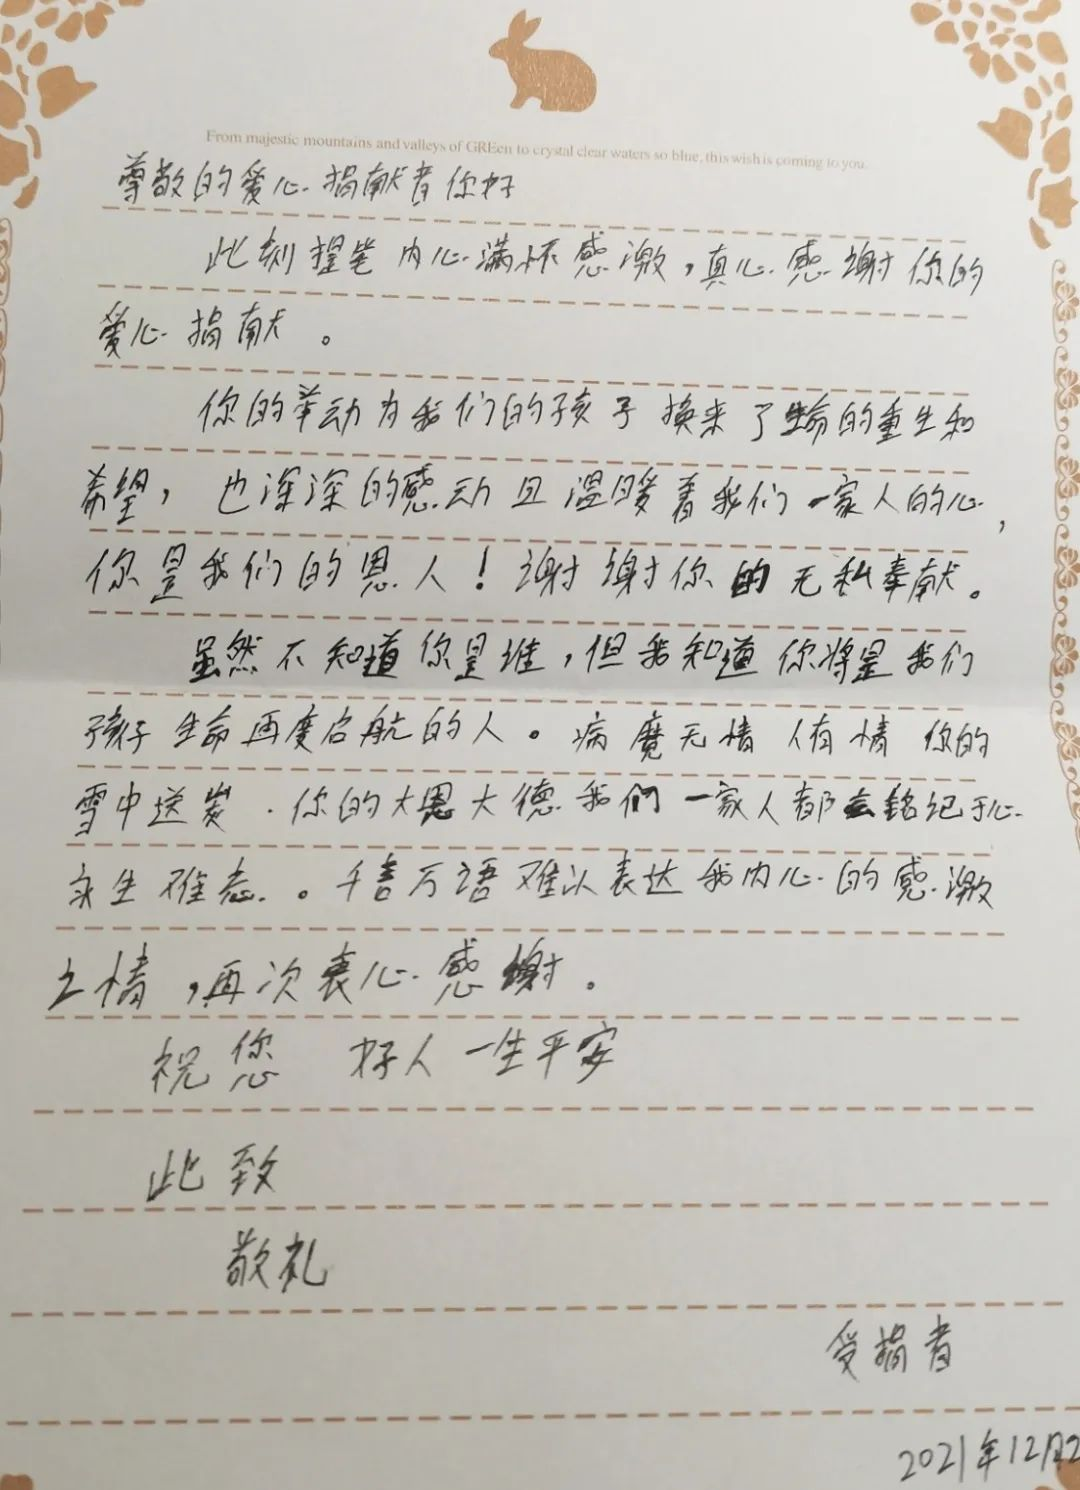 From majestic mountains and valleys of GREen to crystal clear waters so blue, this wish is coming to you.
尊敬的爱心捐献者你好
此刻握笔内心满怀感激,真心感谢你的
爱心捐献。
你的举动为我们的孩子换来了生命的重生和
希望,也深深的感动且温暖着我们一家人的心,
你是我们的恩人!谢谢你的无私奉献。
虽然不知道你是谁,但我知道你将是我们
孩子生命再度启航的人。病魔无情 人有情 你的
雪中送炭.你的大恩大德我们一家人都会铭记于心
永生难忘。千言万语难以表达我内心的感激
之情,再次衷心感谢。
祝您 好人一生平安
此致
敬礼
受捐者
2021年12月2